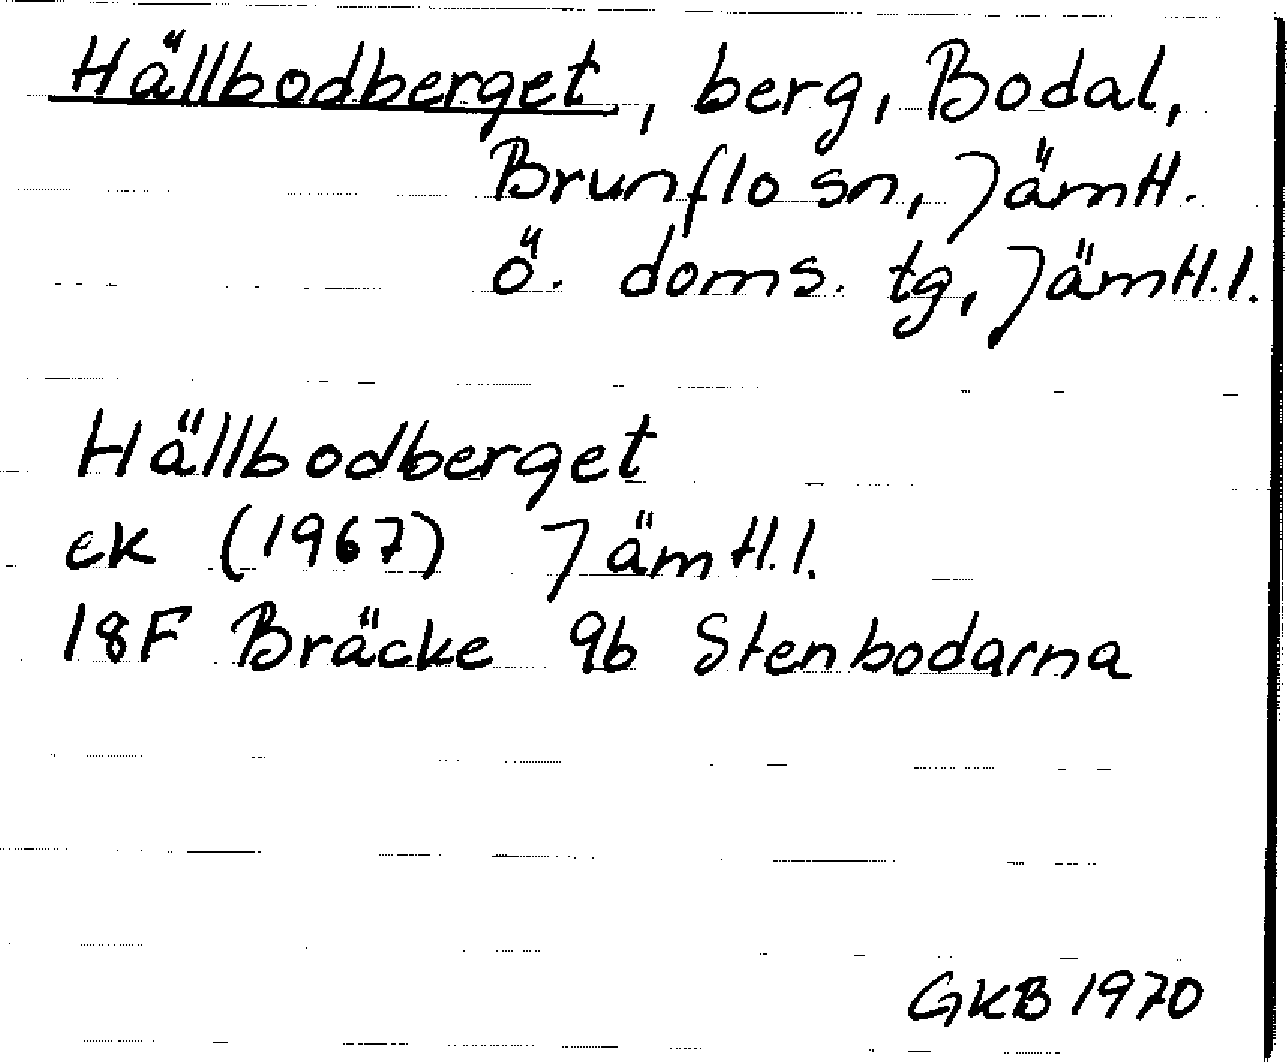 Hällbodberget, berg, Bodal,
Brunflo sn, Jämtl.
ö. doms. tg, Jämtl.l.
Hällbodberget
ek (1967) Jämtl.l.
18F Bräcke 9b Stenbodarna
GKB 1970